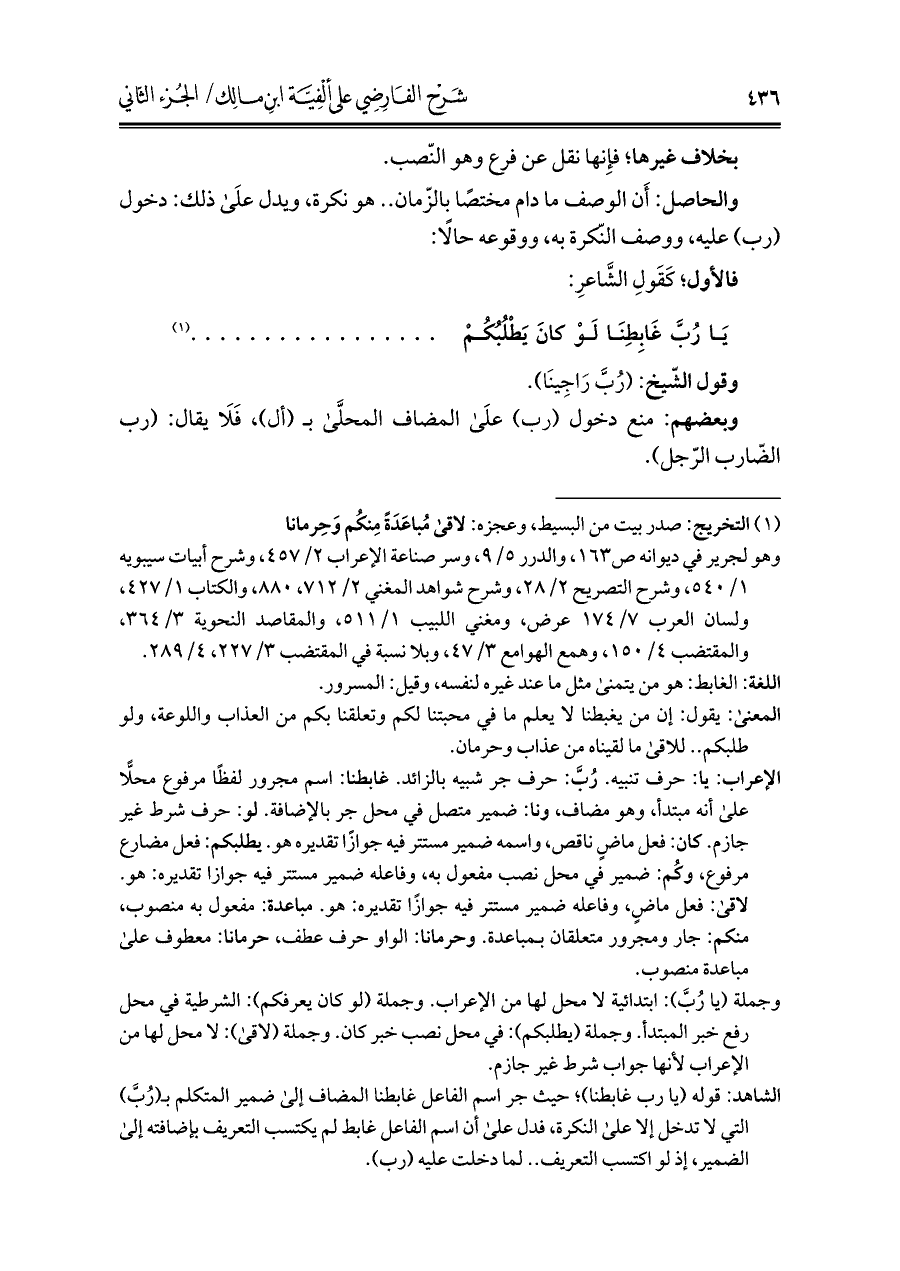 ٤٣٦ شَرْح الفَارِضِي على ألْفِيَّة ابنِ مالِك/ الجُزء الثاني
بخلاف غيرها؛ فإِنها نقل عن فرع وهو النّصب.
والحاصل: أَن الوصف ما دام مختصًا بالزّمان.. هو نكرة، ويدل علَىٰ ذلك: دخول
(رب) عليه، ووصف النّكرة به، ووقوعه حالًا:
فالأول؛ كَقَولِ الشَّاعرِ:
يَـا رُبَّ غَابِطِنَـا لَـوْ كانَ يَطْلُبُكُـمْ . . . . . . . . . . . . . . . . .(١)
وقول الشّيخ: (رُبَّ رَاجِينَا).
وبعضهم: منع دخول (رب) علَىٰ المضاف المحلَّىٰ بـ (أل)، فَلَا يقال: (رب
الضّارب الرّجل).
(١) التخريج: صدر بيت من البسيط، وعجزه: لاقىٰ مُباعَدَةً مِنكُم وَحِرمانا
وهو لجرير في ديوانه ص١٦٣، والدرر ٥/ ٩، وسر صناعة الإعراب ٢/ ٤٥٧، وشرح أبيات سيبويه
١/ ٥٤٠، وشرح التصريح ٢/ ٢٨، وشرح شواهد المغني ٢/ ٧١٢، ٨٨٠، والكتاب ١/ ٤٢٧،
ولسان العرب ٧/ ١٧٤ عرض، ومغني اللبيب ١/ ٥١١، والمقاصد النحوية ٣/ ٣٦٤،
والمقتضب ٤/ ١٥٠، وهمع الهوامع ٣/ ٤٧، وبلا نسبة في المقتضب ٣/ ٢٢٧، ٤/ ٢٨٩.
اللغة: الغابط: هو من يتمنىٰ مثل ما عند غيره لنفسه، وقيل: المسرور.
المعنىٰ: يقول: إن من يغبطنا لا يعلم ما في محبتنا لكم وتعلقنا بكم من العذاب واللوعة، ولو
طلبكم.. للاقىٰ ما لقيناه من عذاب وحرمان.
الإعراب: يا: حرف تنبيه. رُبَّ: حرف جر شبيه بالزائد. غابطنا: اسم مجرور لفظًا مرفوع محلًّا
علىٰ أنه مبتدأ، وهو مضاف، ونا: ضمير متصل في محل جر بالإضافة. لو: حرف شرط غير
جازم. كان: فعل ماضٍ ناقص، واسمه ضمير مستتر فيه جوازًا تقديره هو. يطلبكم: فعل مضارع
مرفوع، وكُم: ضمير في محل نصب مفعول به، وفاعله ضمير مستتر فيه جوازا تقديره: هو.
لاقىٰ: فعل ماضٍ، وفاعله ضمير مستتر فيه جوازًا تقديره: هو. مباعدة: مفعول به منصوب،
منكم: جار ومجرور متعلقان بـمباعدة. وحرمانا: الواو حرف عطف، حرمانا: معطوف علىٰ
مباعدة منصوب.
وجملة (يا رُبَّ): ابتدائية لا محل لها من الإعراب. وجملة (لو كان يعرفكم): الشرطية في محل
رفع خبر المبتدأ. وجملة (يطلبكم): في محل نصب خبر كان. وجملة (لاقىٰ): لا محل لها من
الإعراب لأنها جواب شرط غير جازم.
الشاهد: قوله (يا رب غابطنا)؛ حيث جر اسم الفاعل غابطنا المضاف إلىٰ ضمير المتكلم بـ(رُبَّ)
التي لا تدخل إلا علىٰ النكرة، فدل علىٰ أن اسم الفاعل غابط لم يكتسب التعريف بإضافته إلىٰ
الضمير، إذ لو اكتسب التعريف.. لما دخلت عليه (رب).